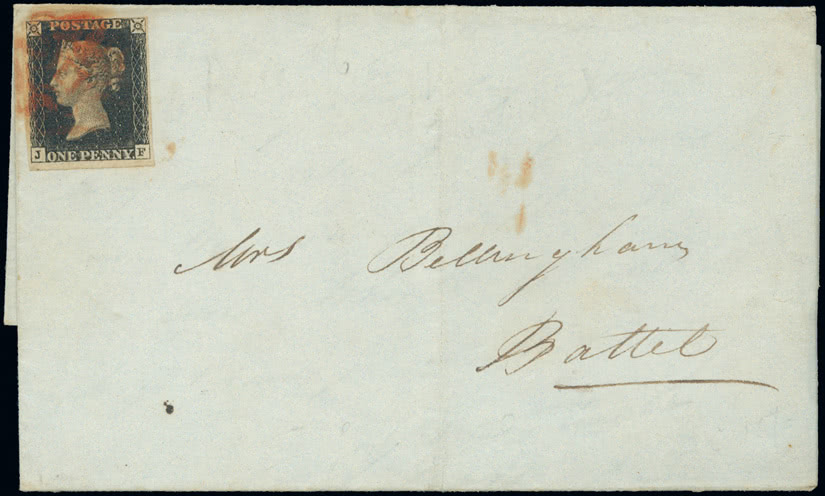 POSTAGE
J ONE PENNY F
Mrs Bellingham
Battel